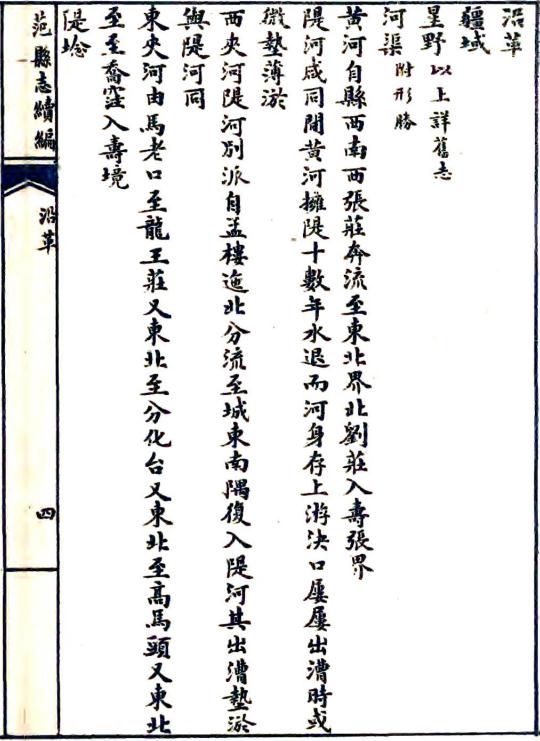 沿革
疆域
星野 以上詳舊志
河渠 附形勝
黃河自縣西南西張莊奔流至東北界北劉莊入壽張界
隄河咸同間黃河擁隄十數年水退而河身存上游決口屢屢出漕時或
微墊薄淤
西夾河隄河別派自孟樓迤北分流至城東南隅復入隄河其出漕墊淤
與隄河同
東夾河由馬老口至龍王莊又東北至分化台又東北至高馬頭又東北
至至喬窪入壽境
隄埝
范縣志續編
沿革
四